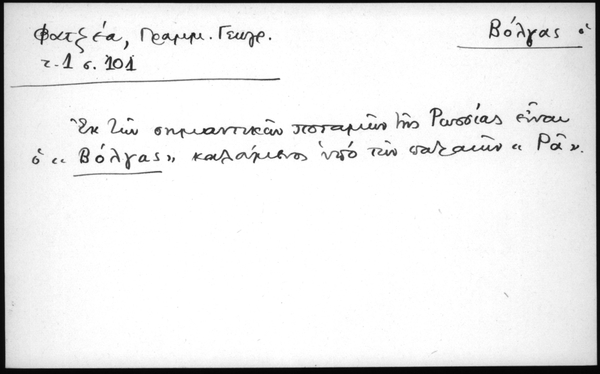 Φατζέα, Γραμμ. Γεωγρ.
τ. 1 σ. 101
Βόλγας ὁ
Ἐκ τῶν σημαντικῶν ποταμῶν τῆς Ρωσσίας εἶναι
ὁ «Βόλγας» καλούμενος ὑπό τῶν παλαιῶν «Ρᾶ».